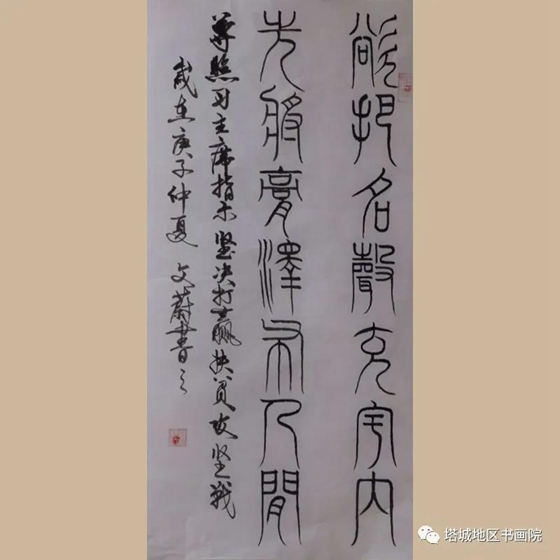 欲把名聲充宇內
先將膏澤布人間
尊照习主席指示坚决打赢扶贫攻坚战
歲在庚子仲夏 文蔚書之
塔城地区书画院